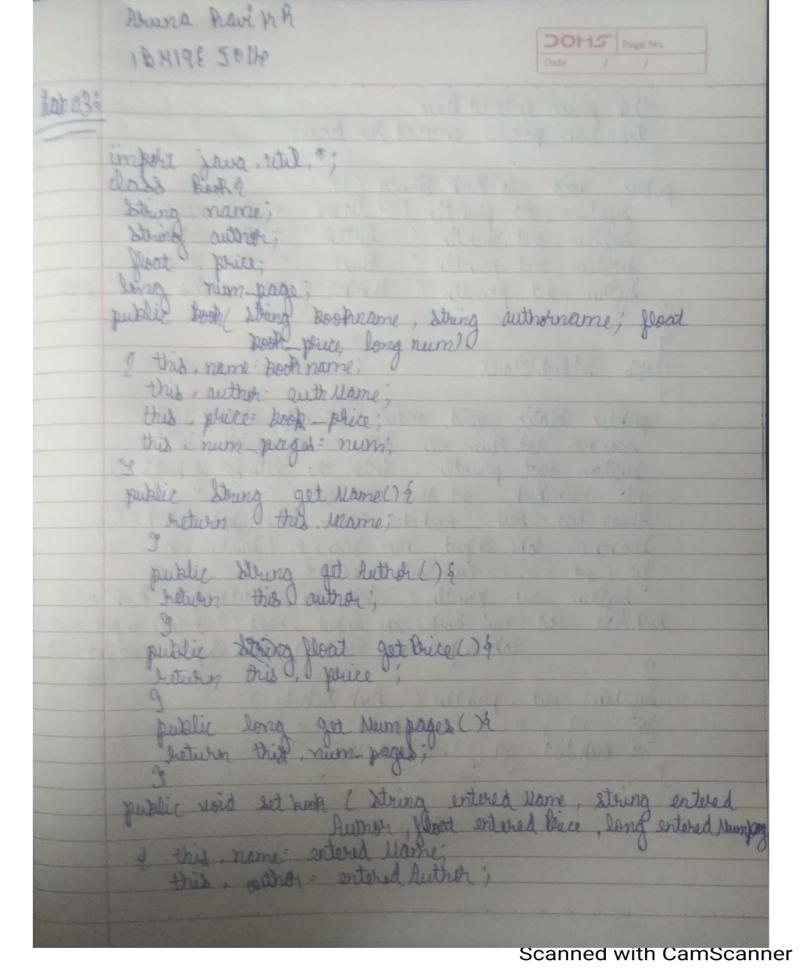 Aruna Ravi
DOMS Page No.
Date / /
Lab 03:
import java.util.*;
class book{
String name;
String author;
float price;
long num_page;
public book( String bookname, String authorname; float
book_price, long num)
{ this.name = book name;
this.author = auth Name;
this.price = book_price;
this.num_pages = num;
}
public String get Name(){
return this.name;
}
public String get Author(){
return this author;
}
public float getPrice(){
return this. price ;
}
public long get Numpages(){
return this.num_pages;
}
public void set book ( String entered Name, string entered
Author, float entered Price, long entered Numpag
{ this.name = entered Name;
this. author = entered Author;
Scanned with CamScanner